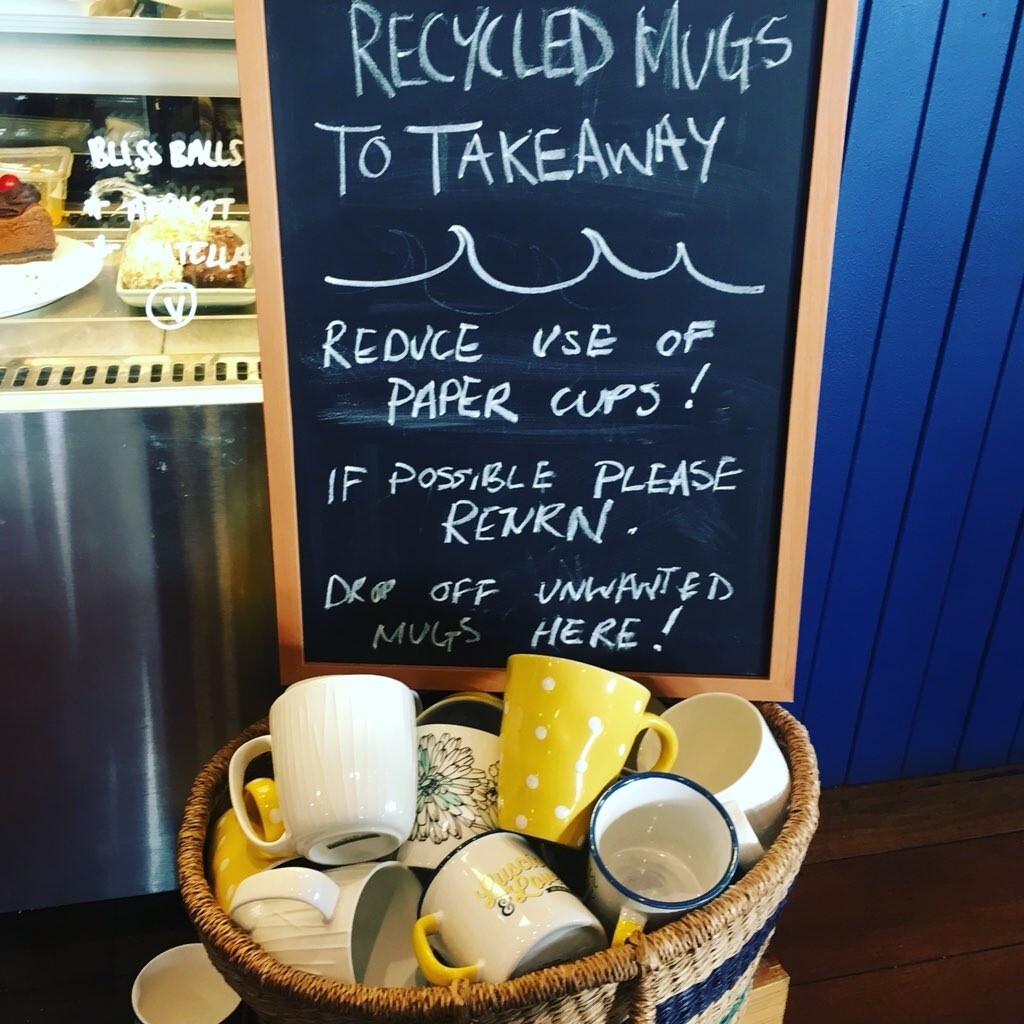 RECYCLED MUGS
TO TAKEAWAY
REDUCE USE OF
PAPER CUPS!
IF POSSIBLE PLEASE
RENRN.
DROP OFF UNWANTED
MUGS HERE!
BLISS BALLS
* APRICOT
* NUTELLA
V
&